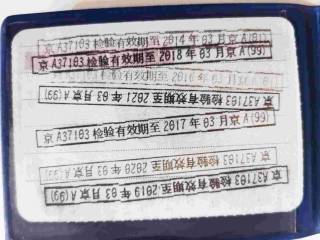 京A37103检验有效期至2014年03月京A(81)
京A37103检验有效期至2018年03月京A(99)
检验有效期至2016年03月京A
京A37103检验有效期至2021年03月京A(99)
京A37103检验有效期至2017年03月京A(99)
京A37103检验有效期至2020年03月京A(99)
京A37103检验有效期至2019年03月京A(99)